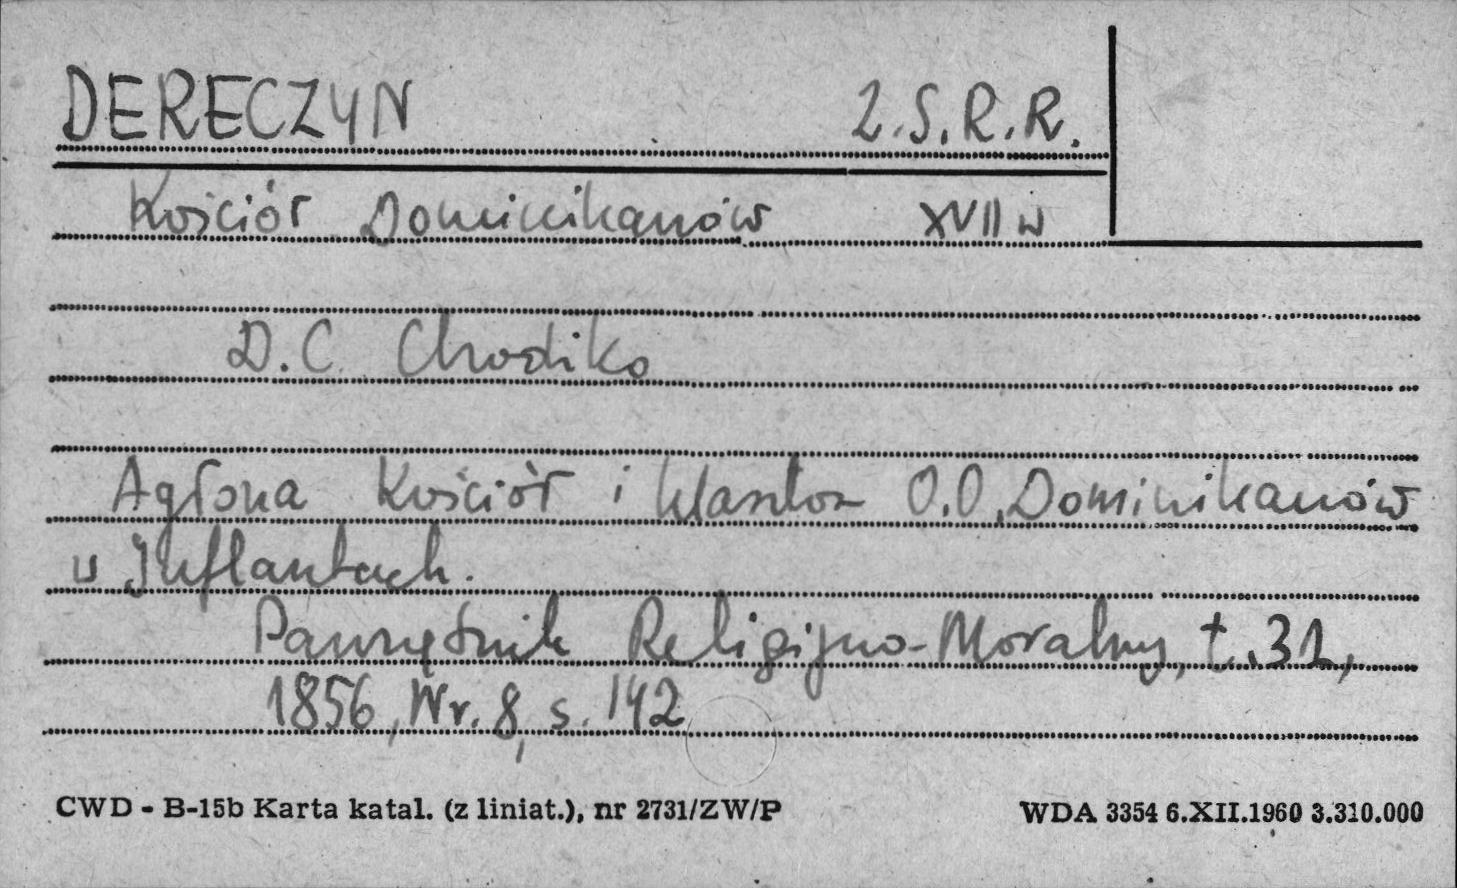 DERECZYN Z.S.R.R.
Kościół Dominikanów XVII w
D.C. Chodźko
Agłona Kościół i klasztor O.O. Dominikanów
w Inflantach.
Pamiętnik Religijno-Moralny, t. 31,
1856, Nr. 8, s. 142
CWD - B-15b Karta katal. (z liniat.), nr 2731/ZW/P WDA 3354 6.XII.1960 3.310.000